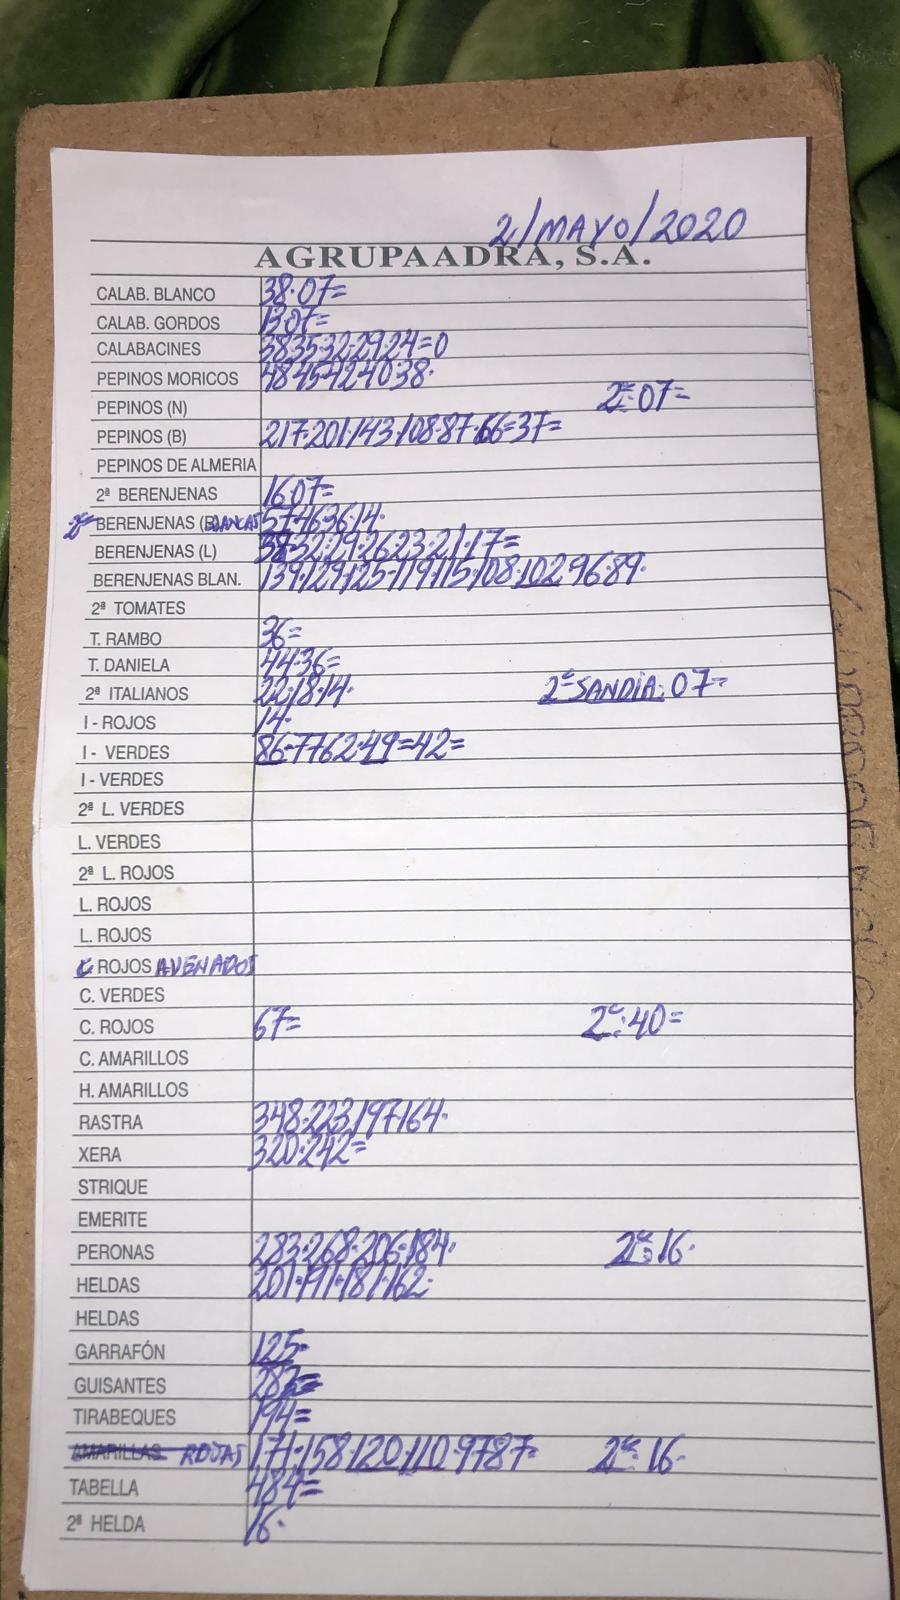 2/MAYO/2020
AGRUPAADRA, S.A.
CALAB. BLANCO 38·07=
CALAB. GORDOS 13·07=
CALABACINES 38·35·32·29·24=0
PEPINOS MORICOS 48·45·42·40·38·
PEPINOS (N) 2ª:07=
PEPINOS (B) 217·201·143·108·87·66=37=
PEPINOS DE ALMERIA
2ª BERENJENAS 16·07=
2ª BERENJENAS (BLANCAS 57·46·36·14·
BERENJENAS (L) 38·32·29·26·23·21·17=
BERENJENAS BLAN. 139·129·125·119·115·108·102·96·89·
2ª TOMATES
T. RAMBO 36=
T. DANIELA 44·36=
2ª ITALIANOS 22·18·14· 2ª SANDIA: 07=
I - ROJOS 14·
I - VERDES 86·77·62·49=42=
I - VERDES
2ª L. VERDES
L. VERDES
2ª L. ROJOS
L. ROJOS
L. ROJOS
C ROJOS AVENADOS
C. VERDES
C. ROJOS 67= 2ª:40=
C. AMARILLOS
H. AMARILLOS
RASTRA 348·223·197·164·
XERA 320·242=
STRIQUE
EMERITE
PERONAS 283·268·206·184· 2ª:16·
HELDAS 201·191·187·162·
HELDAS
GARRAFÓN 125·
GUISANTES
TIRABEQUES 194=
AMARILLAS ROJAS 171·158·120·110·97·87= 2ª:16·
TABELLA 484=
2ª HELDA 16·